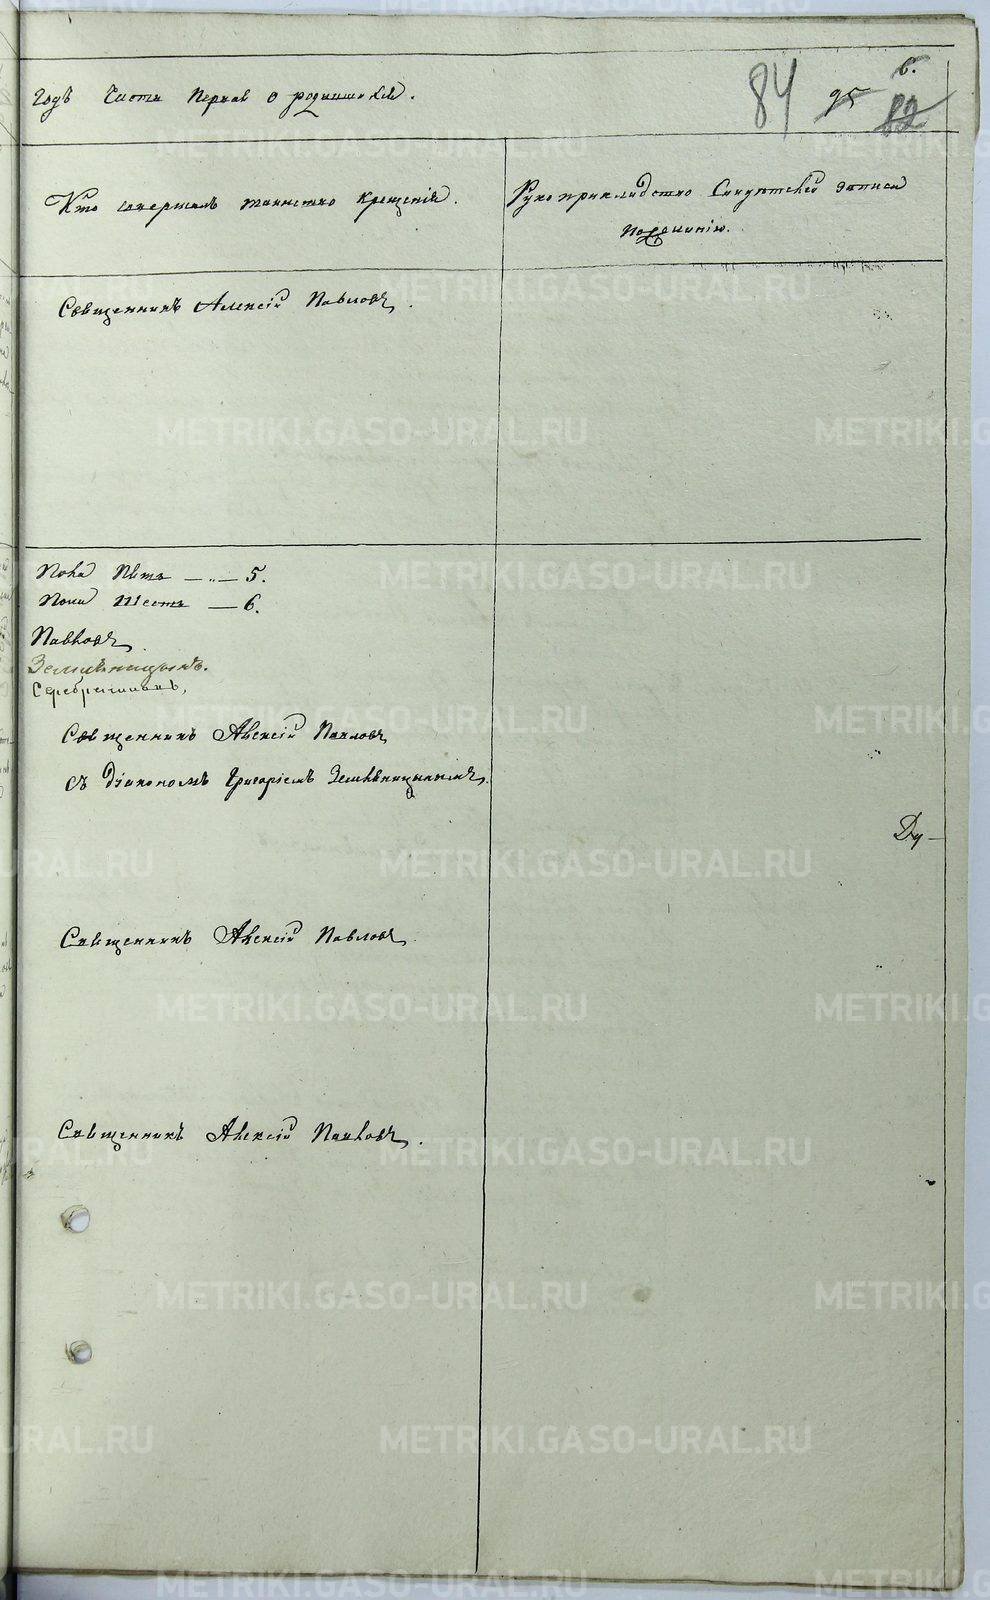 6.
84 95 82
Годъ Часть Первая о родившихся.
Кто совершалъ таинство крещенія.
Рукоприкладство Свидѣтелей записи
по желанію.
Священникъ Алексій Павловъ.
Пола Пять — „ — 5.
Пола Шесть — 6.
Павловъ.
Земляницынъ.
Серебрениковъ,
Священникъ Алексій Павловъ
съ Діакономъ Григоріемъ Земляницынымъ.
Ду-
Священникъ Алексій Павловъ.
Священникъ Алексій Павловъ.
METRIKI.GASO-URAL.RU